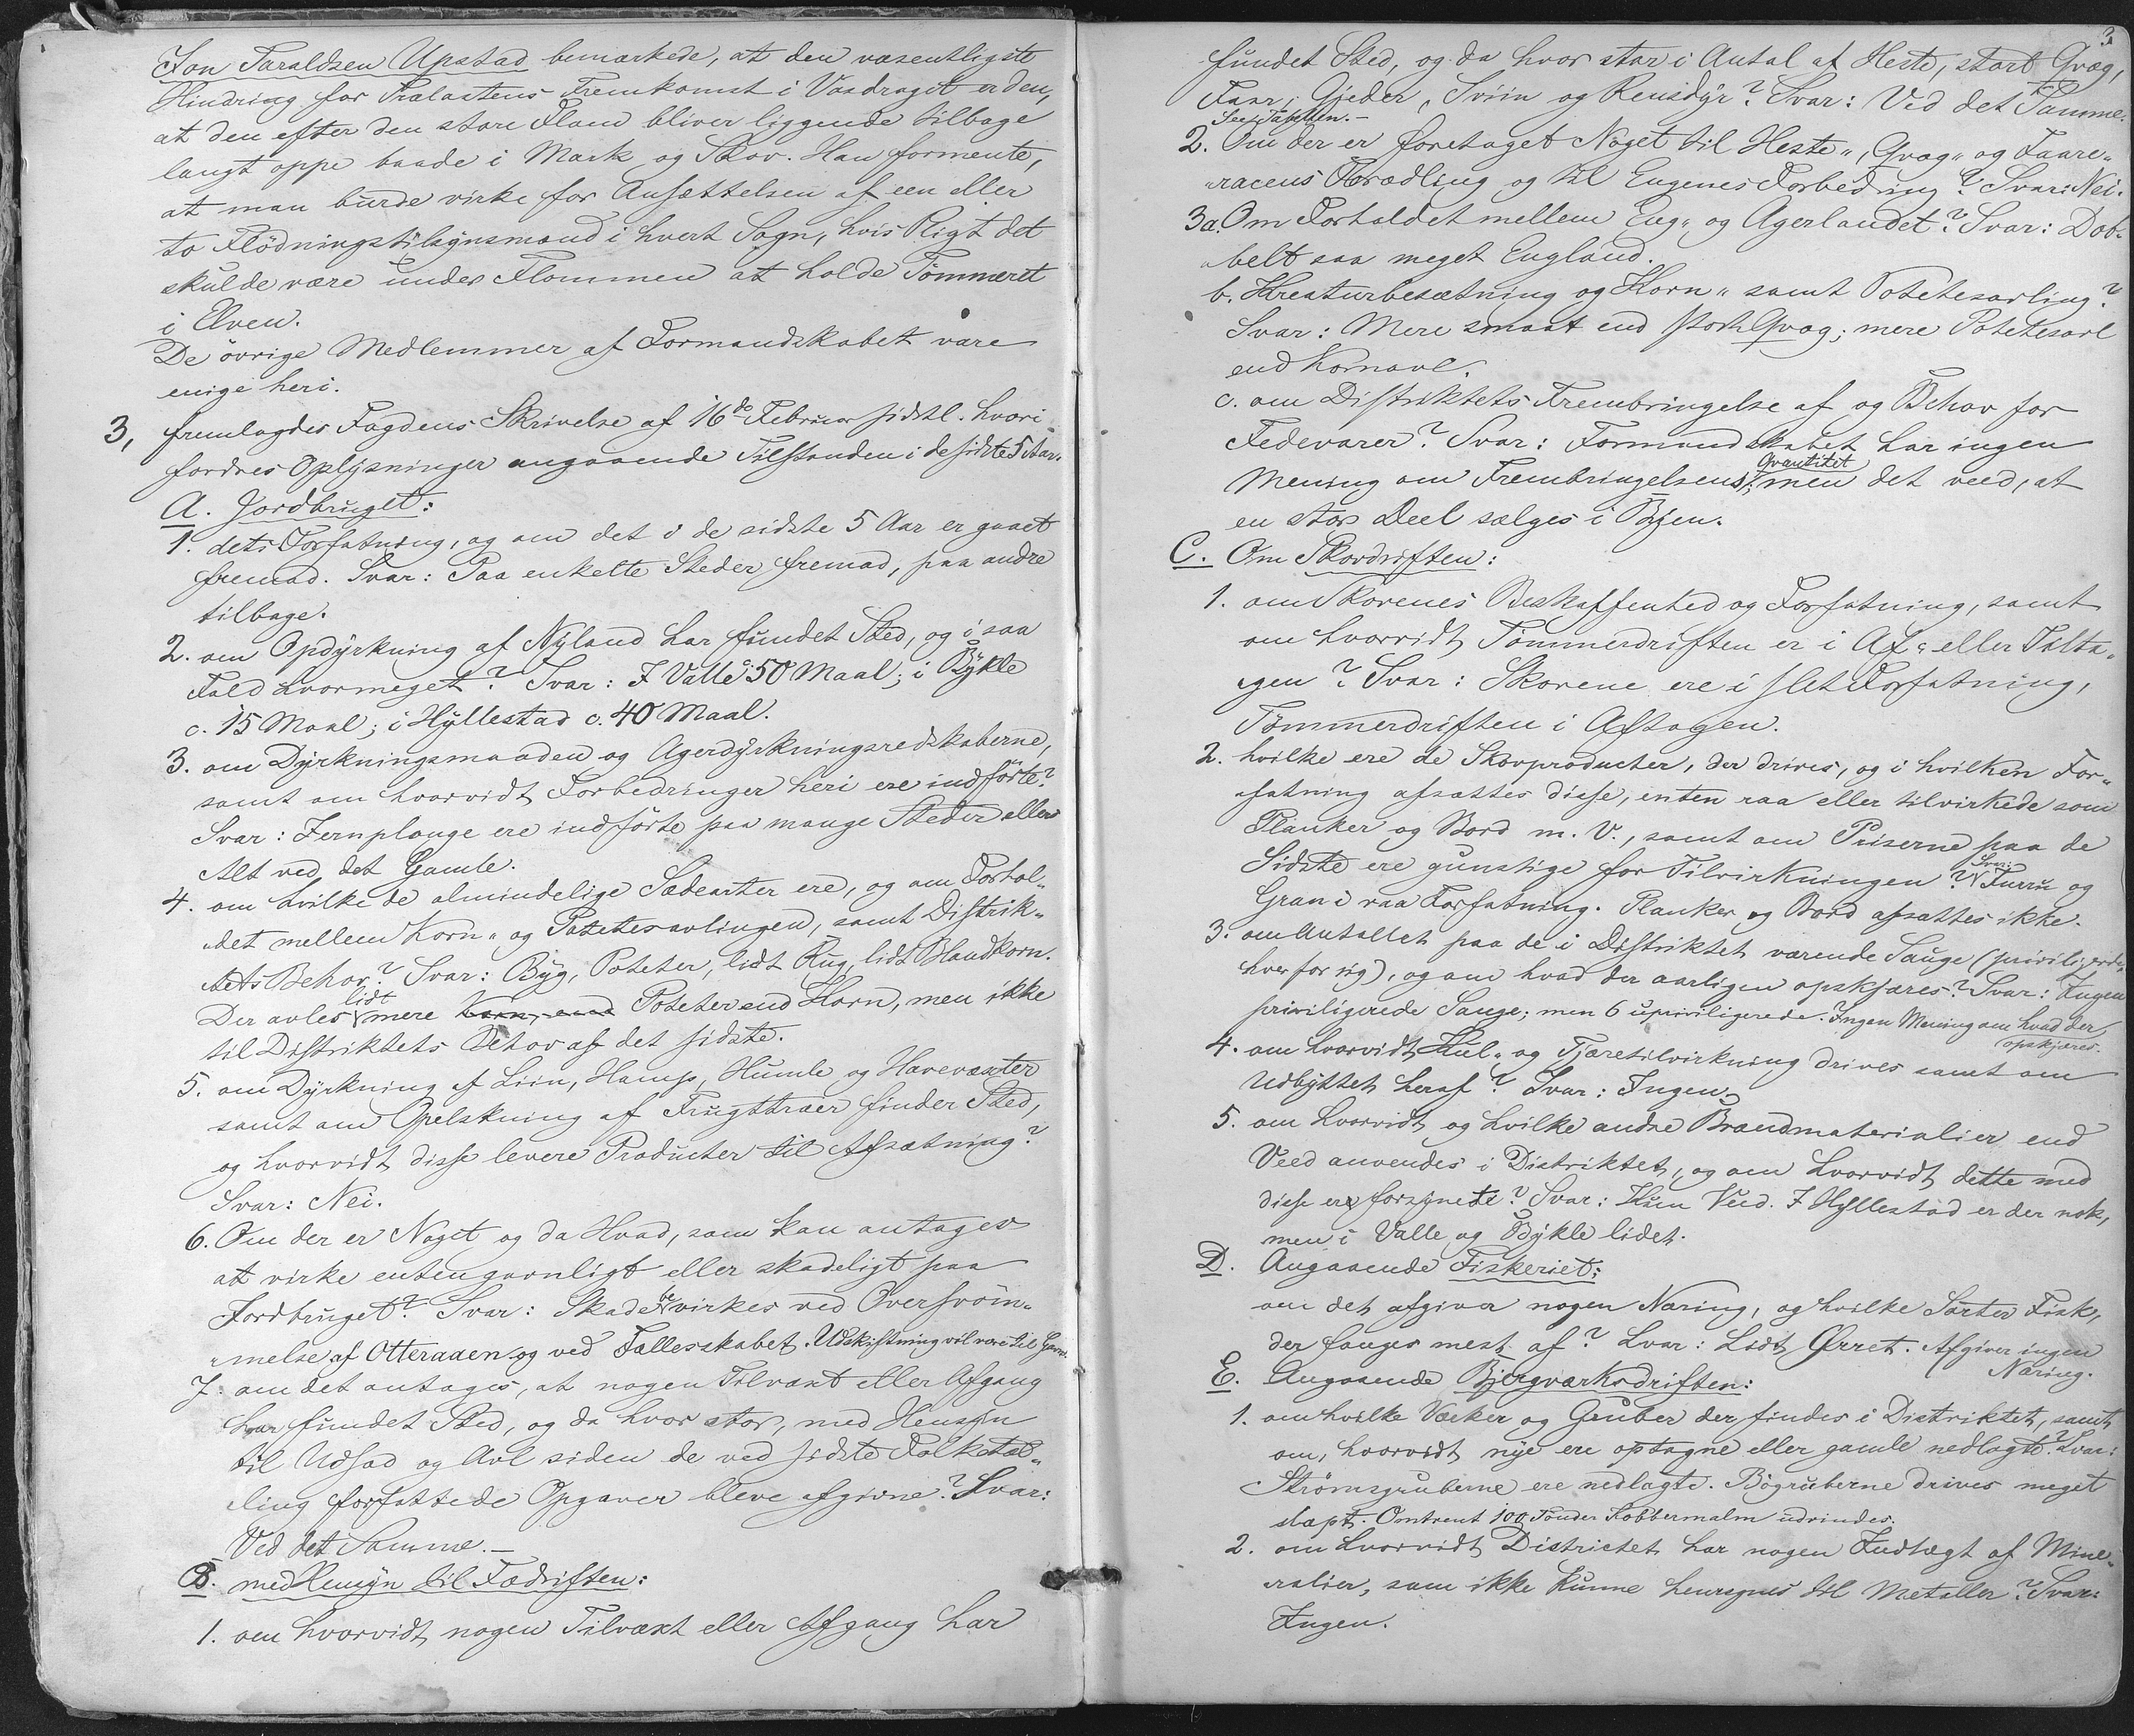 Jon Taraldsen Upstad bemærkede, at den væsentligste
Hindring for Trælastens Fremkomst i Vasdraget er den,
at den efter den store Flom bliver liggende tilbage
langt oppe baade i Mark og Skov. Han formente,
at man burde virke for Ansættelsen af een eller
to Flödningstilsynsmænd i hvert Sogn, hvis Pligt det
skulde være under Flommen at holde Tömmeret
i Elven.
De övrige Medlemmer af Formandskabet vare
enige heri.
3, fremlagdes Fogdens Skrivelse af 16de Februar sidstl. hvori
fordres Oplysninger angaaende Tilstanden i de sidste 5 Aar.
A. Jordbruget:
1. dets Forfatning, og om det i de sidste 5 Aar er gaaet
fremad. Svar: Paa enkelte Steder fremad, paa andre
tilbage.
2. om Opdyrkning af Nyland har fundet Sted, og i saa
Fald hvormeget? Svar: I Valle c. 50 Maal; i Bykle
c. 15 Maal; i Hyllestad c. 40 Maal.
3. om Dyrkningsmaaden og Agerdyrkningsredskaberne,
samt om hvorvidt Forbedringer heri ere indförte?
Svar: Jernplouge ere indförte paa mange Steder ellers
Alt ved det Gamle.
4. om hvilke de almindelige Sædearter ere, og om Forhol-
det mellem Korn- og Potetesavlingen, samt Distrik-
tets Behov? Svar: Byg, Poteter, lidt Rug, lidt Blandkorn.
Der avles lidt mere Korn, end Poteter end Korn, men ikke
til Distriktets Behov af det sidste.
5. om Dyrkning af Liin, Hamp, Humle og Havevæxter
samt om Opelskning af Frugttræer finder Sted,
og hvorvidt disse levere Producter til Afsætning?
Svar: Nei.
6. Om der er Noget og da Hvad, som kan antages
at virke enten gavnligt eller skadeligt paa
Jordbruget? Svar: Skade bevirkes ved Oversvöm-
melse af Otteraaen og ved Fællesskabet. Udskiftning vil være til Gavn.
7. om det antages, at nogen Tilvæxt eller Afgang
har fundet Sted, og da hvor stor, med Hensyn
til Udsæd og Avl siden de ved sidste Folketæl-
ling forfattede Opgaver bleve afgivne? Svar:
Ved det Samme. –
B. med Hensyn til Fædriften:
1. om hvorvidt nogen Tilvæxt eller Afgang har
3
fundet Sted, og da hvor stor i Antal af Heste, stort Qvæg,
Faar, Gjeder, Sviin og Rensdyr? Svar: Ved det Samme.
See Tabellen. –
2. Om der er foretaget Noget til Heste-, Qvæg- og Faare-
racens Forædling og til Engenes Forbedring? Svar: Nei.
3a. Om Forholdet mellem Eng- og Agerlandet? Svar: Dob-
belt saa meget England.
b. Kreaturbesætning og Korn- samt Potetesavling?
Svar: Mere smaat end stort Qvæg; mere Potetesavl
end Kornavl.
c. om Distriktets Frembringelse af og Behov for
Fedevarer? Svar: Formandskabet har ingen
Mening om Frembringelsens Qvantitet, men det veed, at
en stor Deel sælges i Byen.
C. Om Skovdriften:
1. om Skovenes Beskaffenhed og Forfatning, samt
om hvorvidt Tömmerdriften er i Af- eller Tilta-
gen? Svar: Skovene ere i slet Forfatning,
Tömmerdriften i Aftagen.
2. hvilke ere de Skovproducter, der drives, og i hvilken For-
fatning afsættes disse, enten raa eller tilvirkede som
Planker og Bord m. V., samt om Priserne paa de
Sidste ere gunstige for Tilvirkningen? Svar: Furru og
Gran i raa Forfatning. Planker og Bord afsættes ikke.
3. om Antallet paa de i Distriktet værende Sauge (priviligerede
hver for sig), og om hvad der aarligen opskjæres? Svar: Ingen
priviligerede Sauge; men 6 upriviligerede. Ingen Mening om hvad der
opskjæres.
4. om hvorvidt Kul- og Tjæretilvirkning drives samt om
Udbyttet heraf? Svar: Ingen.
5. om hvorvidt og hvilke andre Brændmaterialier end
Veed anvendes i Distriktet, og om hvorvidt dette med
disse er forsynede? Svar: Kun Veed. I Hyllestad er der nok,
men i Valle og Bykle lidet.
D. Angaaende Fiskeriet:
om det afgiver nogen Næring, og hvilke Sorter Fisk,
der fanges mest af? Svar: Lidt Ørret. Afgiver ingen
Næring.
E. Angaaende Bjergværksdriften:
1. om hvilke Værker og Gruber der findes i Distriktet, samt
om, hvorvidt nye ere optagne eller gamle nedlagte? Svar:
Strömsgruberne ere nedlagte. Bögruberne drives meget
slapt. Omtrent 100 Tönder Kobbermalm udvindes.
2. om hvorvidt Districtet har nogen Indtægt af Mine-
ralier, som ikke kunne henregnes til Metaller? Svar:
Ingen.